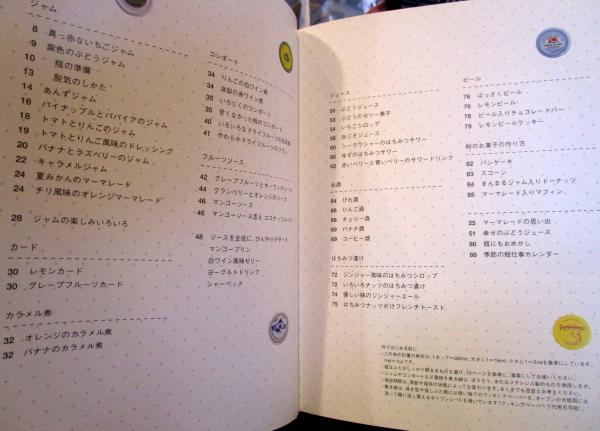 ジャム
8 真っ赤ないちごジャム
9 紫色のぶどうジャム
10 瓶の準備
13 脱気のしかた
14 あんずジャム
16 パイナップルとパパイアのジャム
18 トマトとりんごのジャム
19 トマトとりんご風味のドレッシング
20 バナナとラズベリーのジャム
22 キャラメルジャム
24 夏みかんのマーマレード
24 チリ風味のオレンジマーマレード
28 ジャムの楽しみいろいろ
カード
30 レモンカード
30 グレープフルーツカード
カラメル煮
32 オレンジのカラメル煮
32 バナナのカラメル煮
コンポート
34 りんごの白ワイン煮
34 洋梨の赤ワイン煮
35 いちじくのコンポート
35 甘くなかった桃のコンポート
40 いろいろなドライフルーツの
41 やわらかドライフルーツのフラン
フルーツソース
42 グレープフルーツとキーウィのソース
44 クランベリーとオレンジのソース
46 マンゴーソース
46 マンゴーソース添え ココナッツムース
48 ソースを主役に、ひんやりデザート
マンゴープリン
白ワイン風味ゼリー
ヨーグルトドリンク
シャーベット
ジュース
50 ぶどうジュース
53 ぶどうのゼリー菓子
54 いちごシロップ
56 赤じそジュース
60 シークヮシャーのはちみつサワー
60 ゆずのはちみつサワー
62 赤いベリーと青いベリーのサワードリンク
お酒
64 びわ酒
68 りんご酒
68 チェリー酒
69 バナナ酒
69 コーヒー酒
はちみつ漬け
72 ジンジャー風味のはちみつシロップ
72 いろいろナッツのはちみつ漬け
74 優しい味のジンジャーエール
75 はちみつナッツがけフレンチトースト
ピール
76 はっさくピール
76 レモンピール
78 ピール入りチョコレートバー
79 レモンピールクッキー
粉のお菓子の作り方
82 パンケーキ
83 スコーン
84 まんまるジャム入りドーナッツ
85 マーマレード入りマフィン
25 マーマレードの思い出
51 幸せのぶどうジュース
80 瓶にもおめかし
86 季節の瓶仕事カレンダー
作りはじめる前に